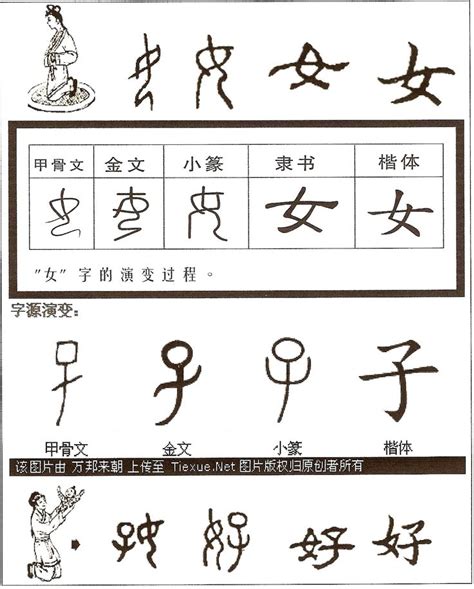 女 女 女 女
甲骨文 金文 小篆 隶书 楷体
女 女 女 女 女
"女"字的演变过程。
字源演变：
子 子 子 子
甲骨文 金文 小篆 楷体
该图片由 万邦来朝 上传至 Tiexue.Net 图片版权归原创者所有
好 好 好 好